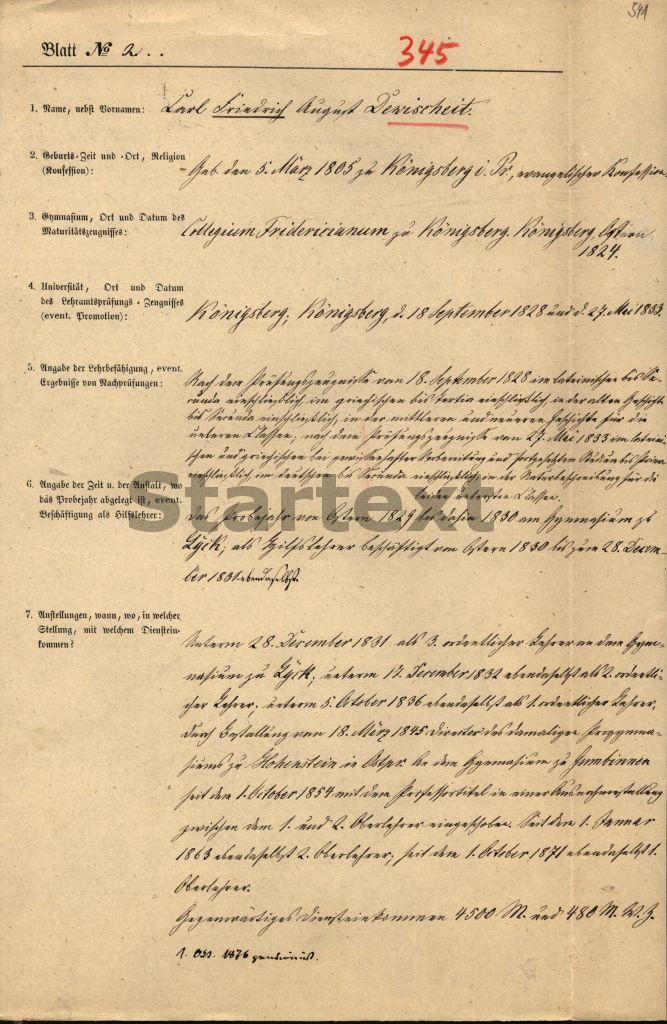 541
Blatt No 2.
345
1. Name, nebst Vornamen: Carl Friedrich August Dewischeit.
2. Geburts-Zeit und -Ort, Religion
(Konfession): Geb. den 5. März 1805 zu Königsberg i. Pr., evangelischer Konfession.
3. Gymnasium, Ort und Datum des
Maturitätszeugnisses: Collegium Fridericianum zu Königsberg. Königsberg, Ostern
1824.
4. Universität, Ort und Datum
des Lehramtsprüfungs-Zeugnisses
(event. Promotion): Königsberg; Königsberg, d. 18 September 1828 und d. 27. Mai 1833.
5. Angabe der Lehrbefähigung, event.
Ergebnisse von Nachprüfungen: Nach dem Prüfungszeugnisse vom 18. September 1828 im lateinischen bis Se-
cunda einschließlich, im griechischen bis Tertia einschließlich, in der alten Geschichte
bis Secunda einschließlich, in der mittleren und neueren Geschichte für die
unteren Classen; nach dem Prüfungszeugnisse vom 27. Mai 1833 im lateini-
schen und griechischen bei gewissenhafter Vorbereitung und fortgesetzten Studien bis Prima
einschließlich, im deutschen bis Secunda einschließlich, in der Naturbeschreibung für die
beiden untersten Classen.
6. Angabe der Zeit u. der Anstalt, wo
das Probejahr abgelegt ist, event.
Beschäftigung als Hilfslehrer: Das Probejahr von Ostern 1829 bis dahin 1830 am Gymnasium zu
Lyck; als Hilfslehrer beschäftigt von Ostern 1830 bis zum 28. Decem-
ber 1831 ebendaselbst.
Startext
7. Anstellungen, wann, wo, in welcher
Stellung, mit welchem Dienstein-
kommen? Unterm 28. December 1831 als 3. ordentlicher Lehrer an dem Gym-
nasium zu Lyck; unterm 17. December 1832 ebendaselbst als 2. ordentli-
cher Lehrer; unterm 5. October 1836 ebendaselbst als 1. ordentlicher Lehrer.
Durch Bestallung vom 18. März 1845 Director des damaligen Progymna-
siums zu Hohenstein in Ostpr. An dem Gymnasium zu Gumbinnen
seit dem 1. October 1854 mit dem Professortitel in einer Ausnahmestellung
zwischen dem 1. und 2. Oberlehrer eingeschoben. Seit dem 1. Januar
1863 ebendaselbst 2. Oberlehrer, seit dem 1. October 1871 ebendaselbst 1.
Oberlehrer.
Gegenwärtiges Diensteinkommen 4500 M. und 480 M. W. Z.
1. Oct. 1876 pensionirt.